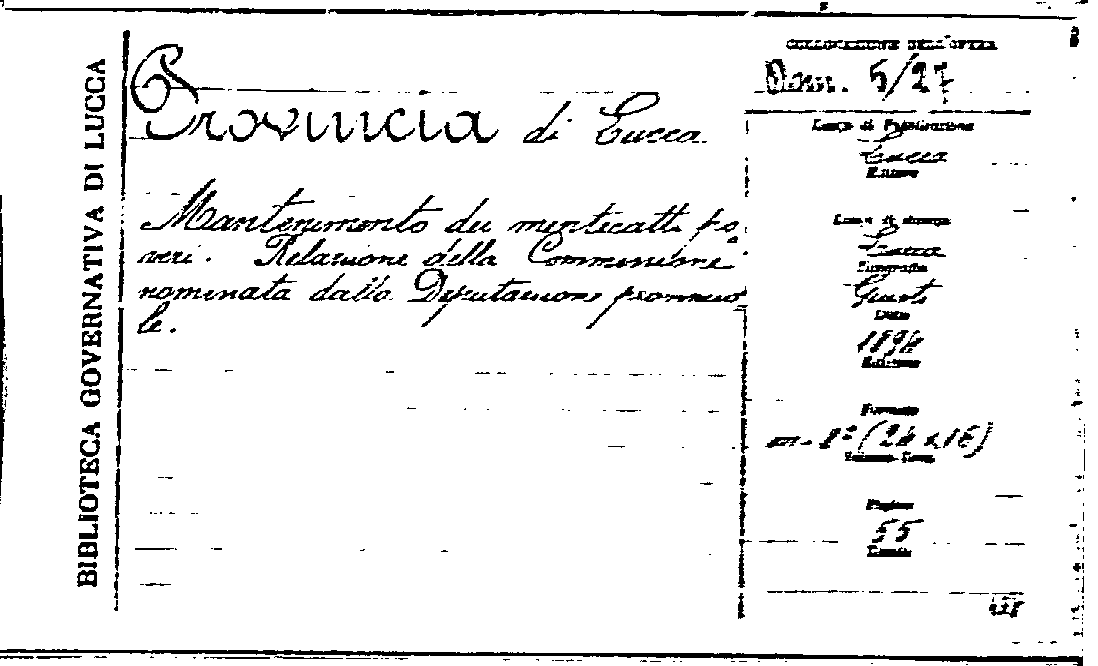 BIBLIOTECA GOVERNATIVA DI LUCCA
Provincia di Lucca
Mantenimento dei mentecatti po-
veri. Relazione della Commissione
nominata dalla Deputazione provincia
le.
COLLOCAZIONE DELL'OPERA
Dom. 5/27
Luogo di Pubblicazione
Lucca
Editore
Luogo di stampa
Lucca
Tipografia
Giusti
Data
Edizione
Formato
in-8° (24 x 16)
Pagine
55